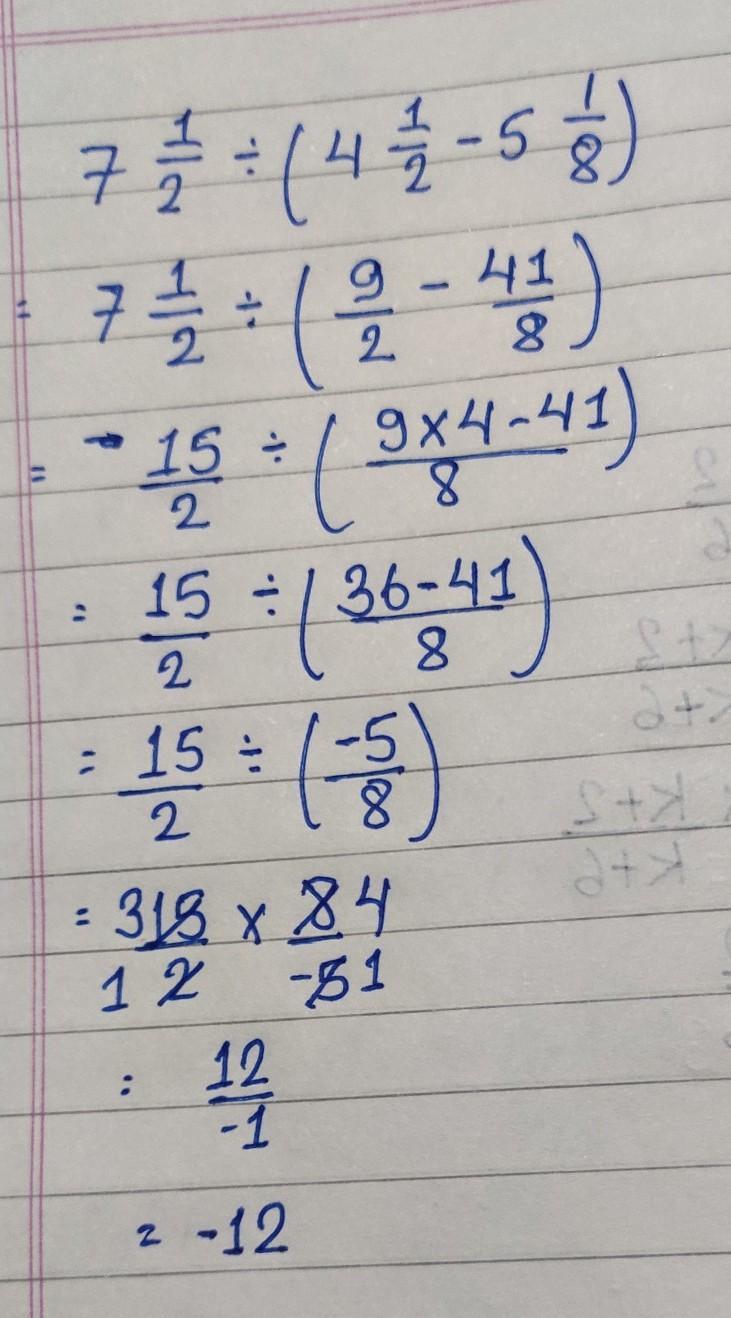 7 1/2 ÷ (4 1/2 - 5 1/8)
= 7 1/2 ÷ (9/2 - 41/8)
= 15/2 ÷ ((9x4-41)/8)
= 15/2 ÷ ((36-41)/8)
= 15/2 ÷ (-5/8)
= 3 15/1 2 x 8 4/-5 1
= 12/-1
= -12